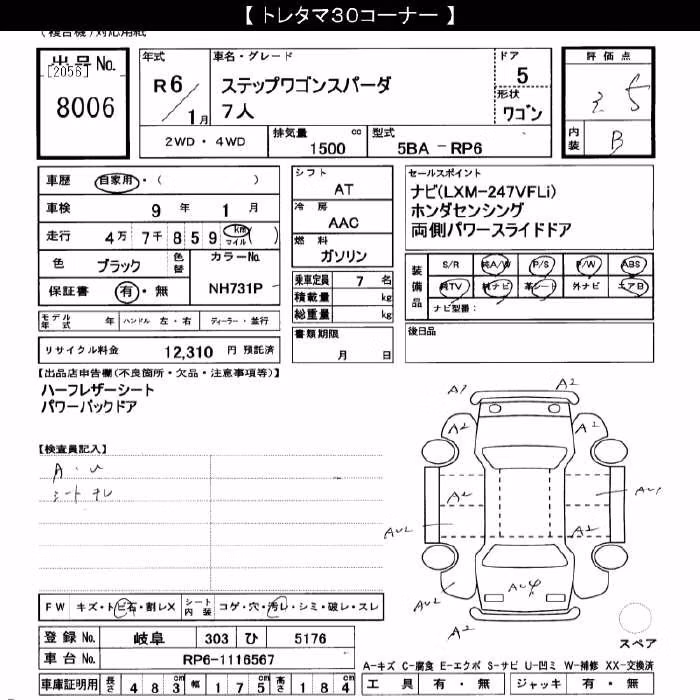 【 トレタマ30コーナー 】
(複合機)対応用紙
出品No. [2056] 8006
年式 R6/1月
車名・グレード ステップワゴンスパーダ
7人
ドア 5
形状 ワゴン
評価点 3.5
内装 B
2WD・4WD 排気量 1500 cc 型式 5BA-RP6
車歴 自家用・( )
車検 9年 1月
走行 4万 7千 8 5 9 km マイル ( )
色 ブラック 色替 カラーNo. NH731P
保証書 有・無
モデル年式 年 ハンドル 左・右 ディーラー・並行
リサイクル料金 12,310 円 預託済
シフト AT
冷房 AAC
燃料 ガソリン
乗車定員 7 名
積載量 kg
総重量 kg
書類期限 月 日
セールスポイント
ナビ(LXM-247VFLi)
ホンダセンシング
両側パワースライドドア
装備品 S/R 純A/W P/S P/W ABS
純TV 純ナビ 革シート 外ナビ エアB
ナビ型番:
後日品
【出品店申告欄(不良箇所・欠品・注意事項等)】
ハーフレザーシート
パワーバックドア
【検査員記入】
A・U
シートスレ
A1 A2
A2 A2
A2 AU1
AU2 A2
AU2 AU4
A2
スペア
FW キズ・トビ石・割レX シート内装 コゲ・穴・汚レ・シミ・破レ・スレ
登録No. 岐阜 303 ひ 5176
車台No. RP6-1116567
車庫証明用 長さ 483 cm 幅 175 cm 高さ 184 cm
A-キズ C-腐食 E-エクボ S-サビ U-凹ミ W-補修 XX-交換済
工具 有・無 ジャッキ 有・無